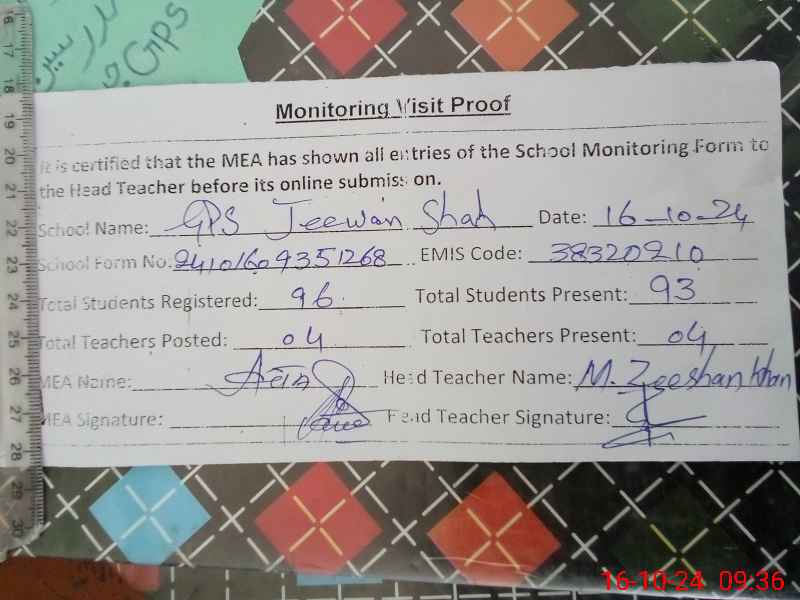 GPS
Monitoring Visit Proof
It is certified that the MEA has shown all entries of the School Monitoring Form to
the Head Teacher before its online submission.
School Name: GPS Jeewan Shah Date: 16-10-24
School Form No: 24101609351268 EMIS Code: 38320210
Total Students Registered: 96 Total Students Present: 93
Total Teachers Posted: 04 Total Teachers Present: 04
MEA Name: Head Teacher Name: M. Zeeshan Khan
MEA Signature: Head Teacher Signature:
16 17 18 19 20 21 22 23 24 25 26 27 28 29 30
16-10-24 09:36